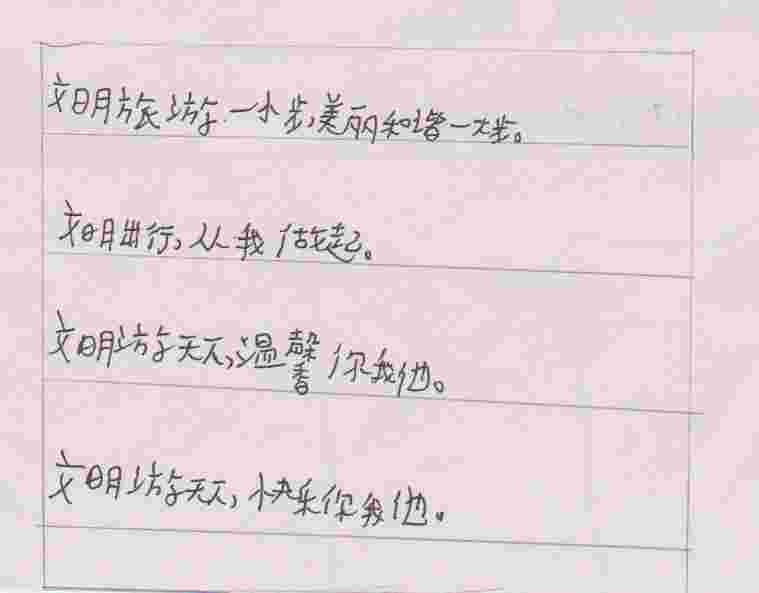 文明旅游一小步,美丽和谐一大步。
文明出行,从我做起。
文明游天下,温馨你我他。
文明游天下,快乐你我他。